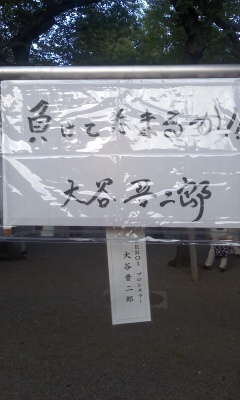 負けてたまるか!!
大谷晋二郎
ZERO1 プロレスラー
大谷晋二郎